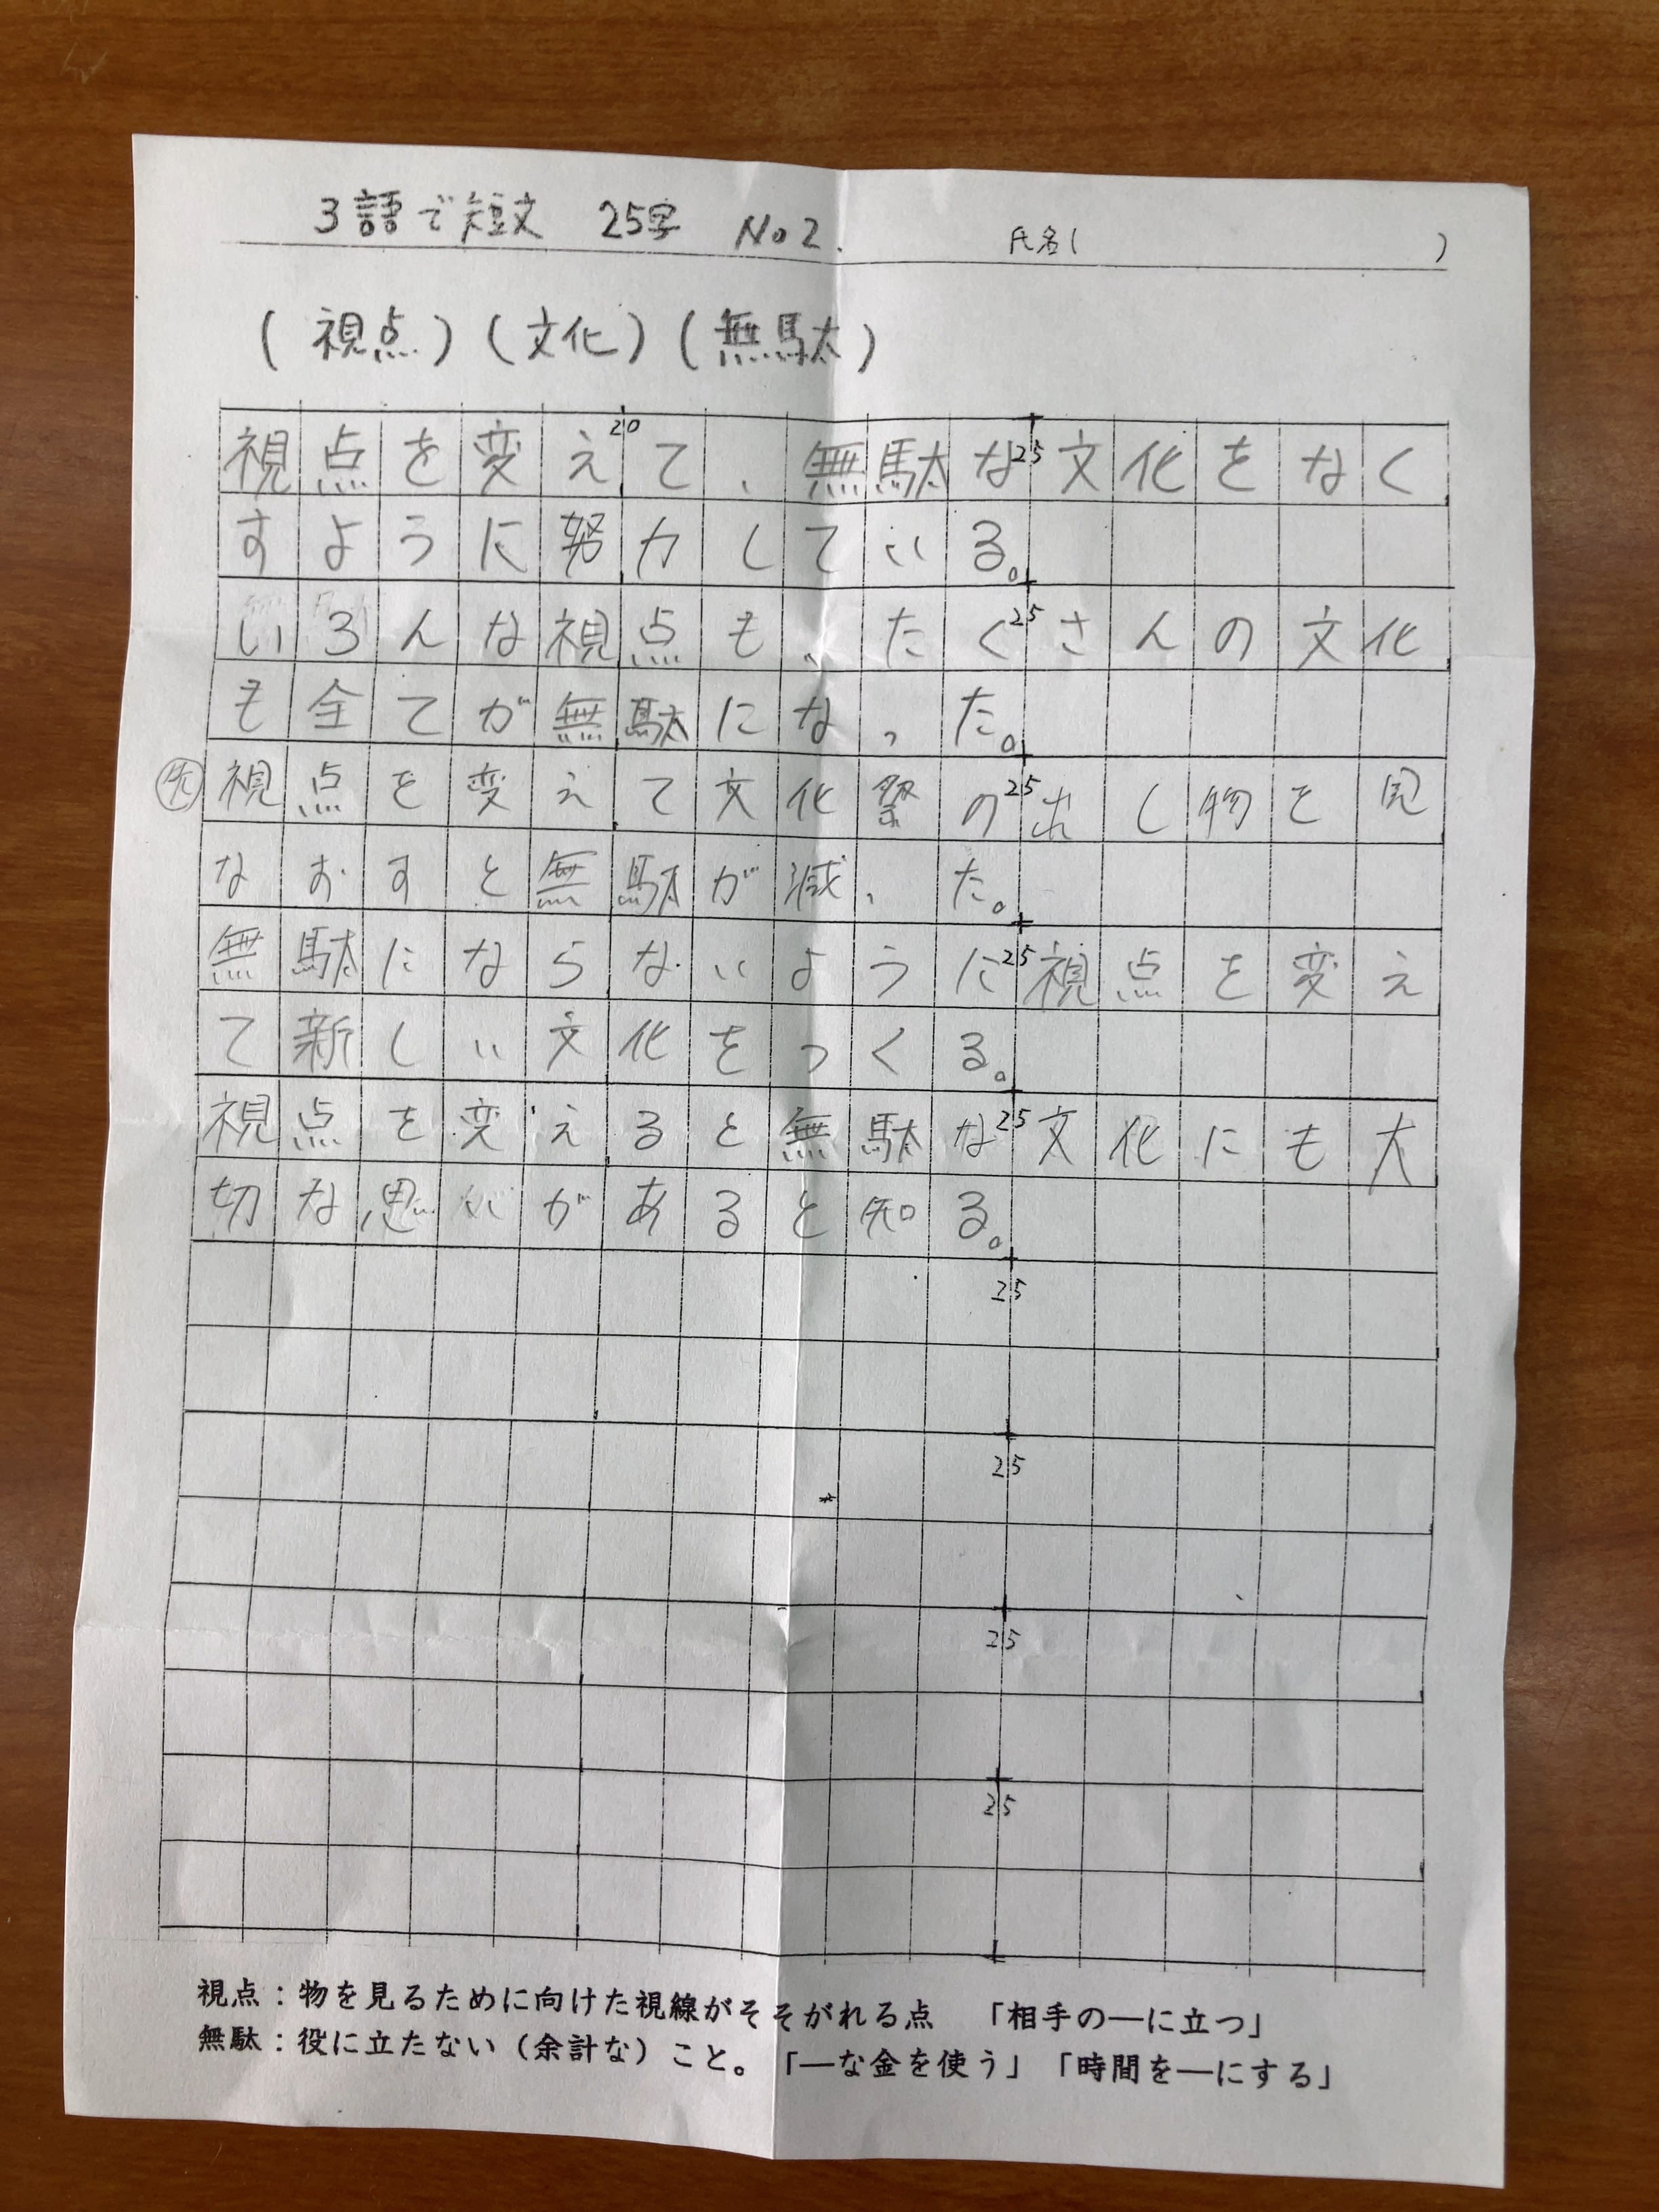 3語で短文 25字 No2. 氏名( )
(視点)(文化)(無駄)
20
視点を変えて、無駄な文化をなく
25
すように努力している。
いろんな視点も、たくさんの文化
25
も全てが無駄になった。
視点を変えて文化祭の出し物を見
25
なおすと無駄が減った。
無駄にならないように視点を変え
25
て新しい文化をつくる。
視点を変えると無駄な文化にも大
25
切な思いがあると知る。
25
25
25
25
視点：物を見るために向けた視線がそそがれる点 「相手の―に立つ」
無駄：役に立たない（余計な）こと。「―な金を使う」「時間を―にする」